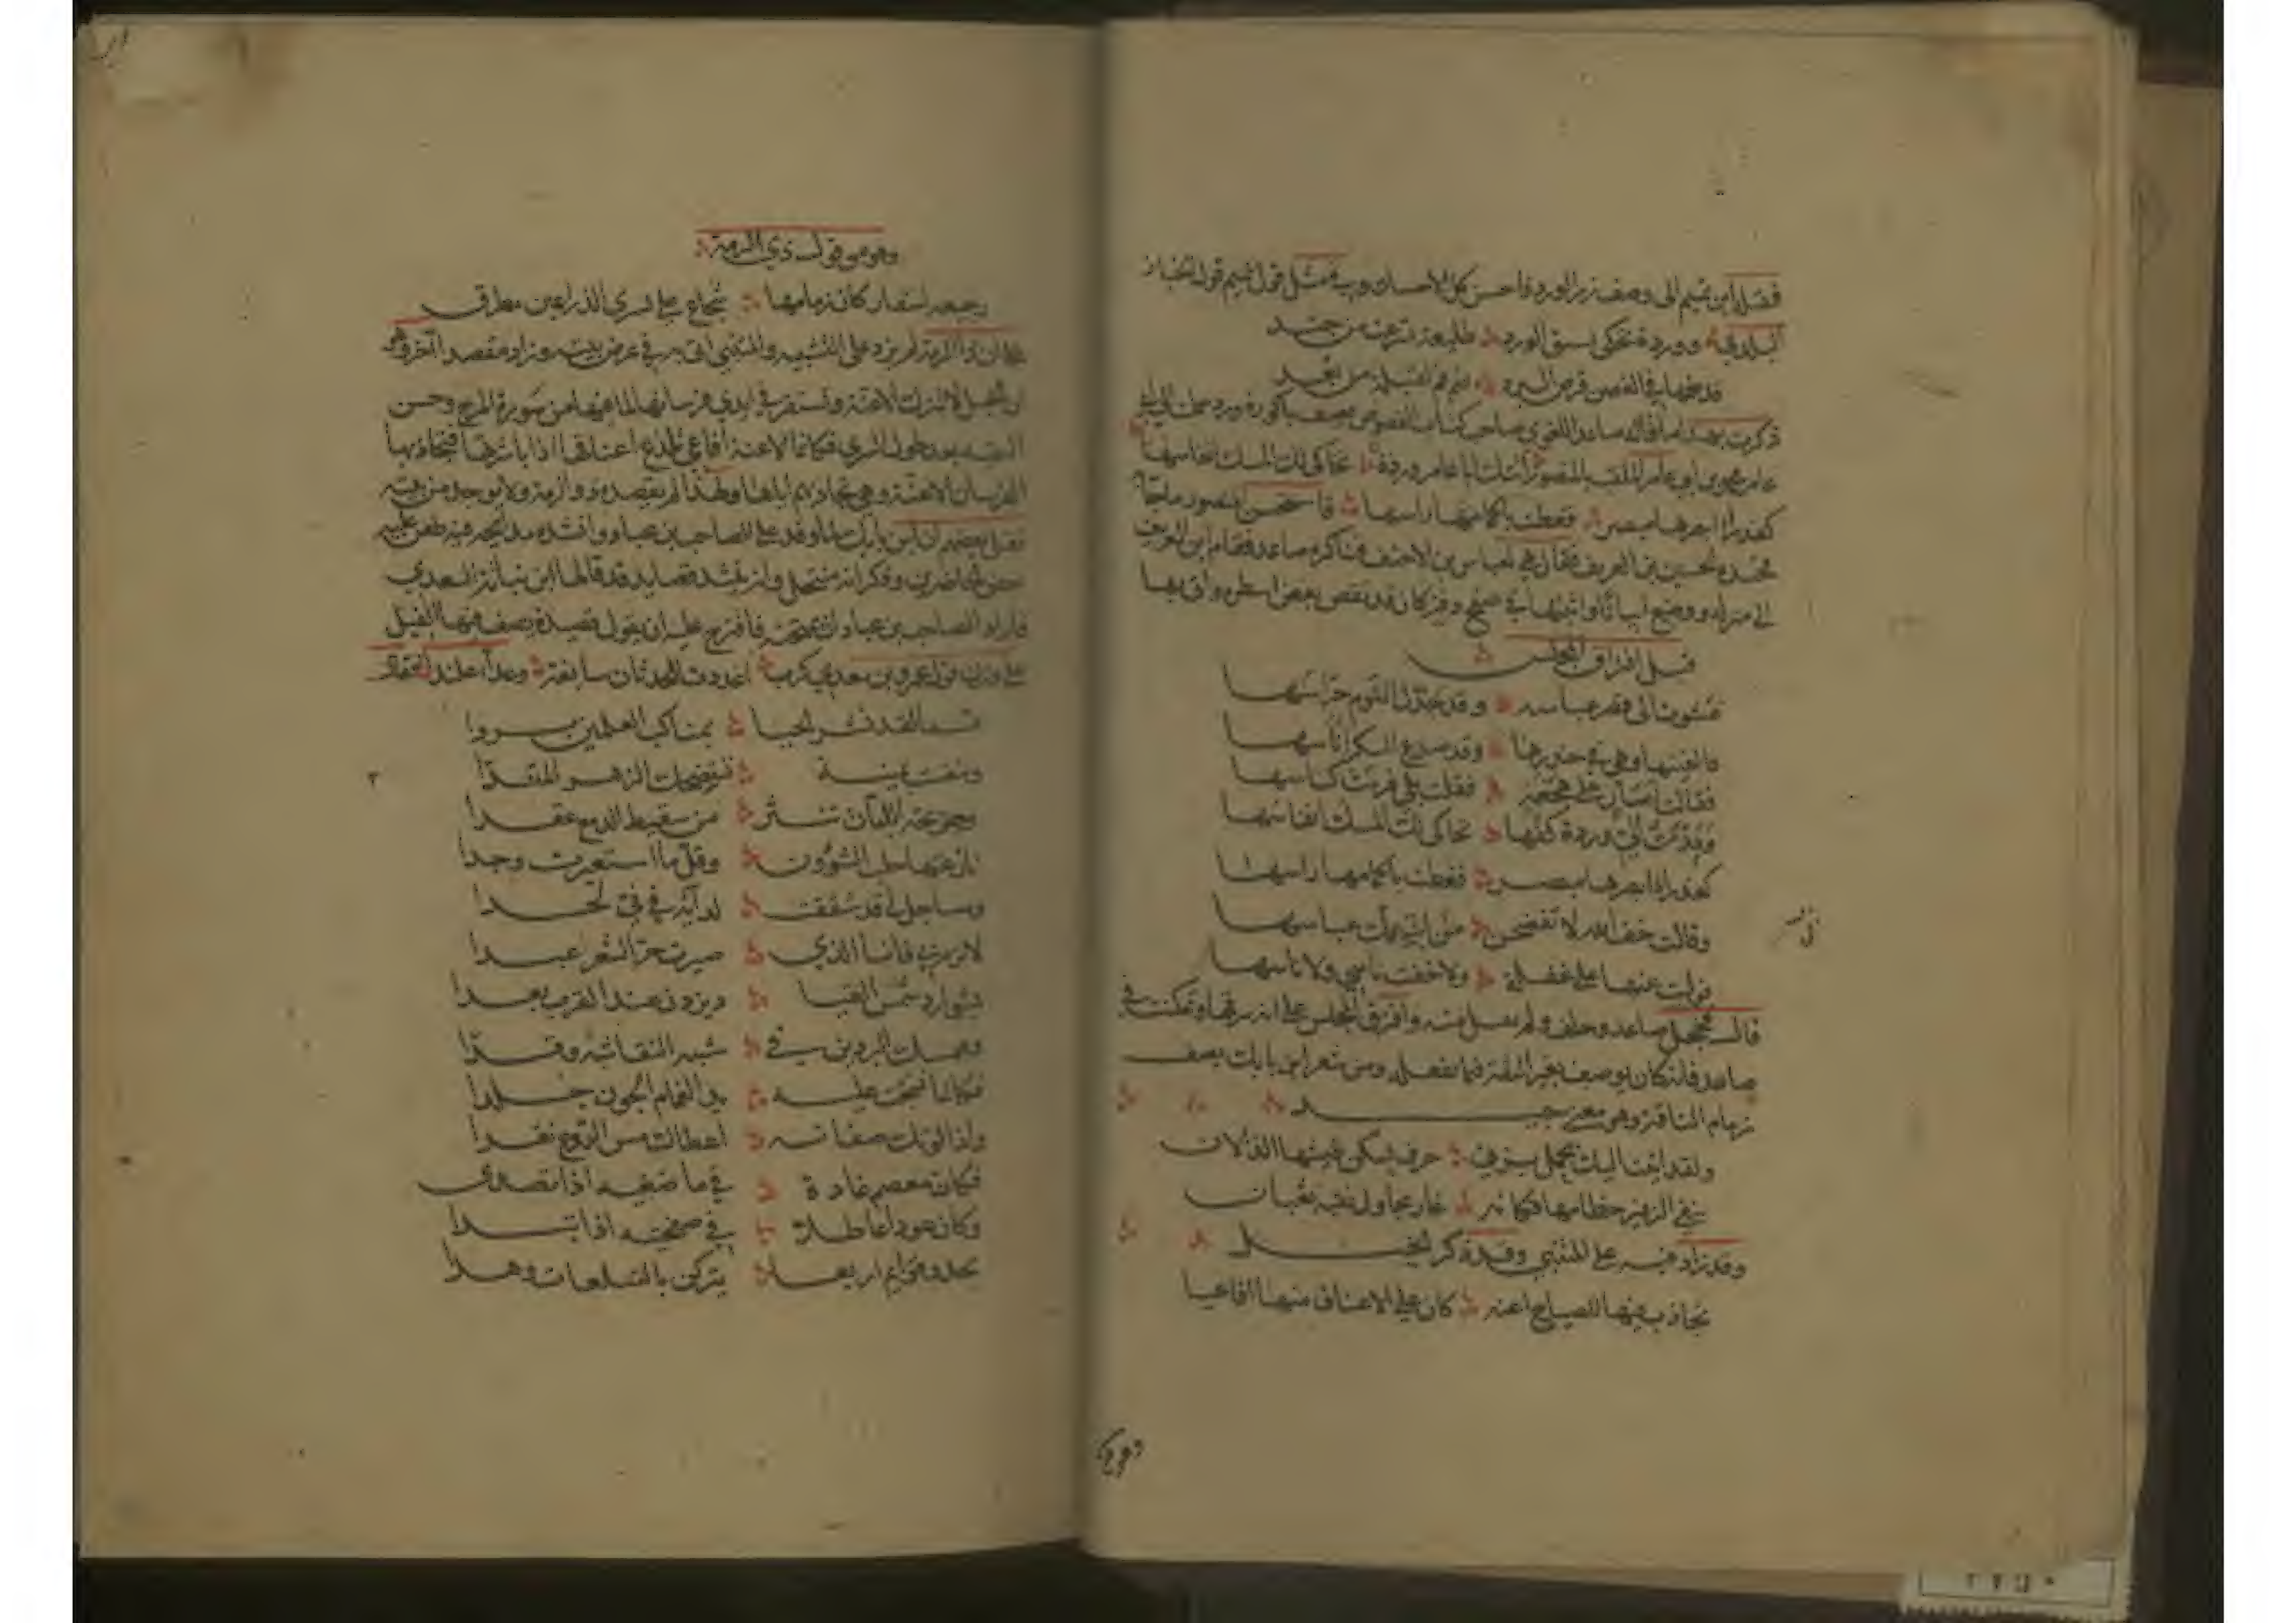 فضله ابن تميم الى وصف زر الورد فاحسن كل الاحسان ومثل قول ابن تميم قول الخباز
البلدي ووردة تحكي بسبق الورد طليعة تسرعت من جند
قد ضمها في الغصن قرص البرد ضم فم لقبلة من بعد
ذكرت بهذا ما قاله صاعد اللغوي صاحب كتاب الفصوص يصف باكورة ورد حملت الى ابي
عامر محمد بن ابي عامر الملقب بالمنصور اتتك ابا عامر وردة تحاكي لك المسك انفاسها
كعذراء ابصرها مبصر فغطت باكمامها راسها فاستحسن المنصور ما جاء
الحسين بن العريف فقال هي لعباس بن الاحنف فناكره صاعد فقام ابن العريف
الى منزله ووضع ابياتا واثبتها في دفتر كان قد نقض بعض اسطره واتى بها
قبل افتراق المجلس
عشوت الى قصر عباسه وقد جدل النوم حراسها
فالفيتها وهي في خدرها وقد صدع السكر اناسها
فقالت اسار على هجعة فقلت بلى فرمت كاسها
ومدت الى وردة كفها تحاكي لك المسك انفاسها
كعذراء ابصرها مبصر فغطت باكمامها راسها
وقالت خف الله لا تفضحن في ابنة عمك عباسها
فوليت عنها على غفلة ولا خفت ناسي ولا ناسها
قال فخجل صاعد وحلف فلم يقبل منه وافترق المجلس على انه سرقها وتمكنت في
صاعد فانه كان يوصف بغير الثقة فيما يفعله ومن شعر ابن بابك يصف
زمام الناقة وهو معنى جيد
ولقد اتيت اليك تحمل بزتي حرف يسكن طيشها الذألان
ينفي الزفير خطامها فكانه غار يحاول نقبه ثعبان
وقد زاد فيه على المتنبي وقد ذكر الخيل
تجاذب فيها للصباح اعنة كان على الاعناق منها افاعيا
وهو من قول ذي الرمة
رجيعة اسفار كان زمامها شجاع على يسرى الذراعين مطرق
على ان ذا الرمة لم يزد على التشبيه والمتنبي اتى به في عرض بيته وزاد مقصدا آخر وهو
ان الخيل لا تترك الاعنة تستقر في ايدي فرسانها لما فيها من سورة المرح وحسن
البقية بعد طول السرى فكانما الاعنة افاعي تلدغ اعناقها اذا باشرتها فتجاذبها
الفرسان الاعنة وهي تجاذبهم اياها وهذا لم يقصده ذو الرمة ولا يوجد من بيته
نقل بعضهم ان ابن بابك لما وفد على الصاحب بن عباد وانشده مديحه فيه طعن عليه
بعض الحاضرين وذكر انه منتحل وانه ينشد قصايد قد قالها ابن نباتة السعدي
فاراد الصاحب بن عباد ان يمتحنه فاقترح عليه ان يقول قصيدة يصف فيها الفيل
على وزن قول عمرو بن معدي كرب اعددت للحدثان سابغة وعداء علندا فقال
قسما لقد نشر الحيا بمناكب العلمين بردا
وتنفست يمنية تستضحك الزهر المندا
وجريحة اللبات تنثر من سقيط الدمع عقدا
نازعتها حلب الشؤون وقلما استعبرت وجدا
ومساجل لي قد شققت لدائه في في لحدا
لا ترم بي فانا الذي صيرت حر الشعر عبدا
بشوارد شمس القيا د يزدن عند القرب بعدا
وممسك البردين في شبه النقا شية وقدا
فكانما نسجت عليه يد الغمام الجون جلدا
واذا لوتك صفاته اعطاك مس الروع نقدا
فكان معصم غادة في ماضغيه اذا تصدى
وكان عودا عاطلا في صفحتيه اذا تبدا
يحدو قوائم اربعا يتركن بالتلعات وهدا